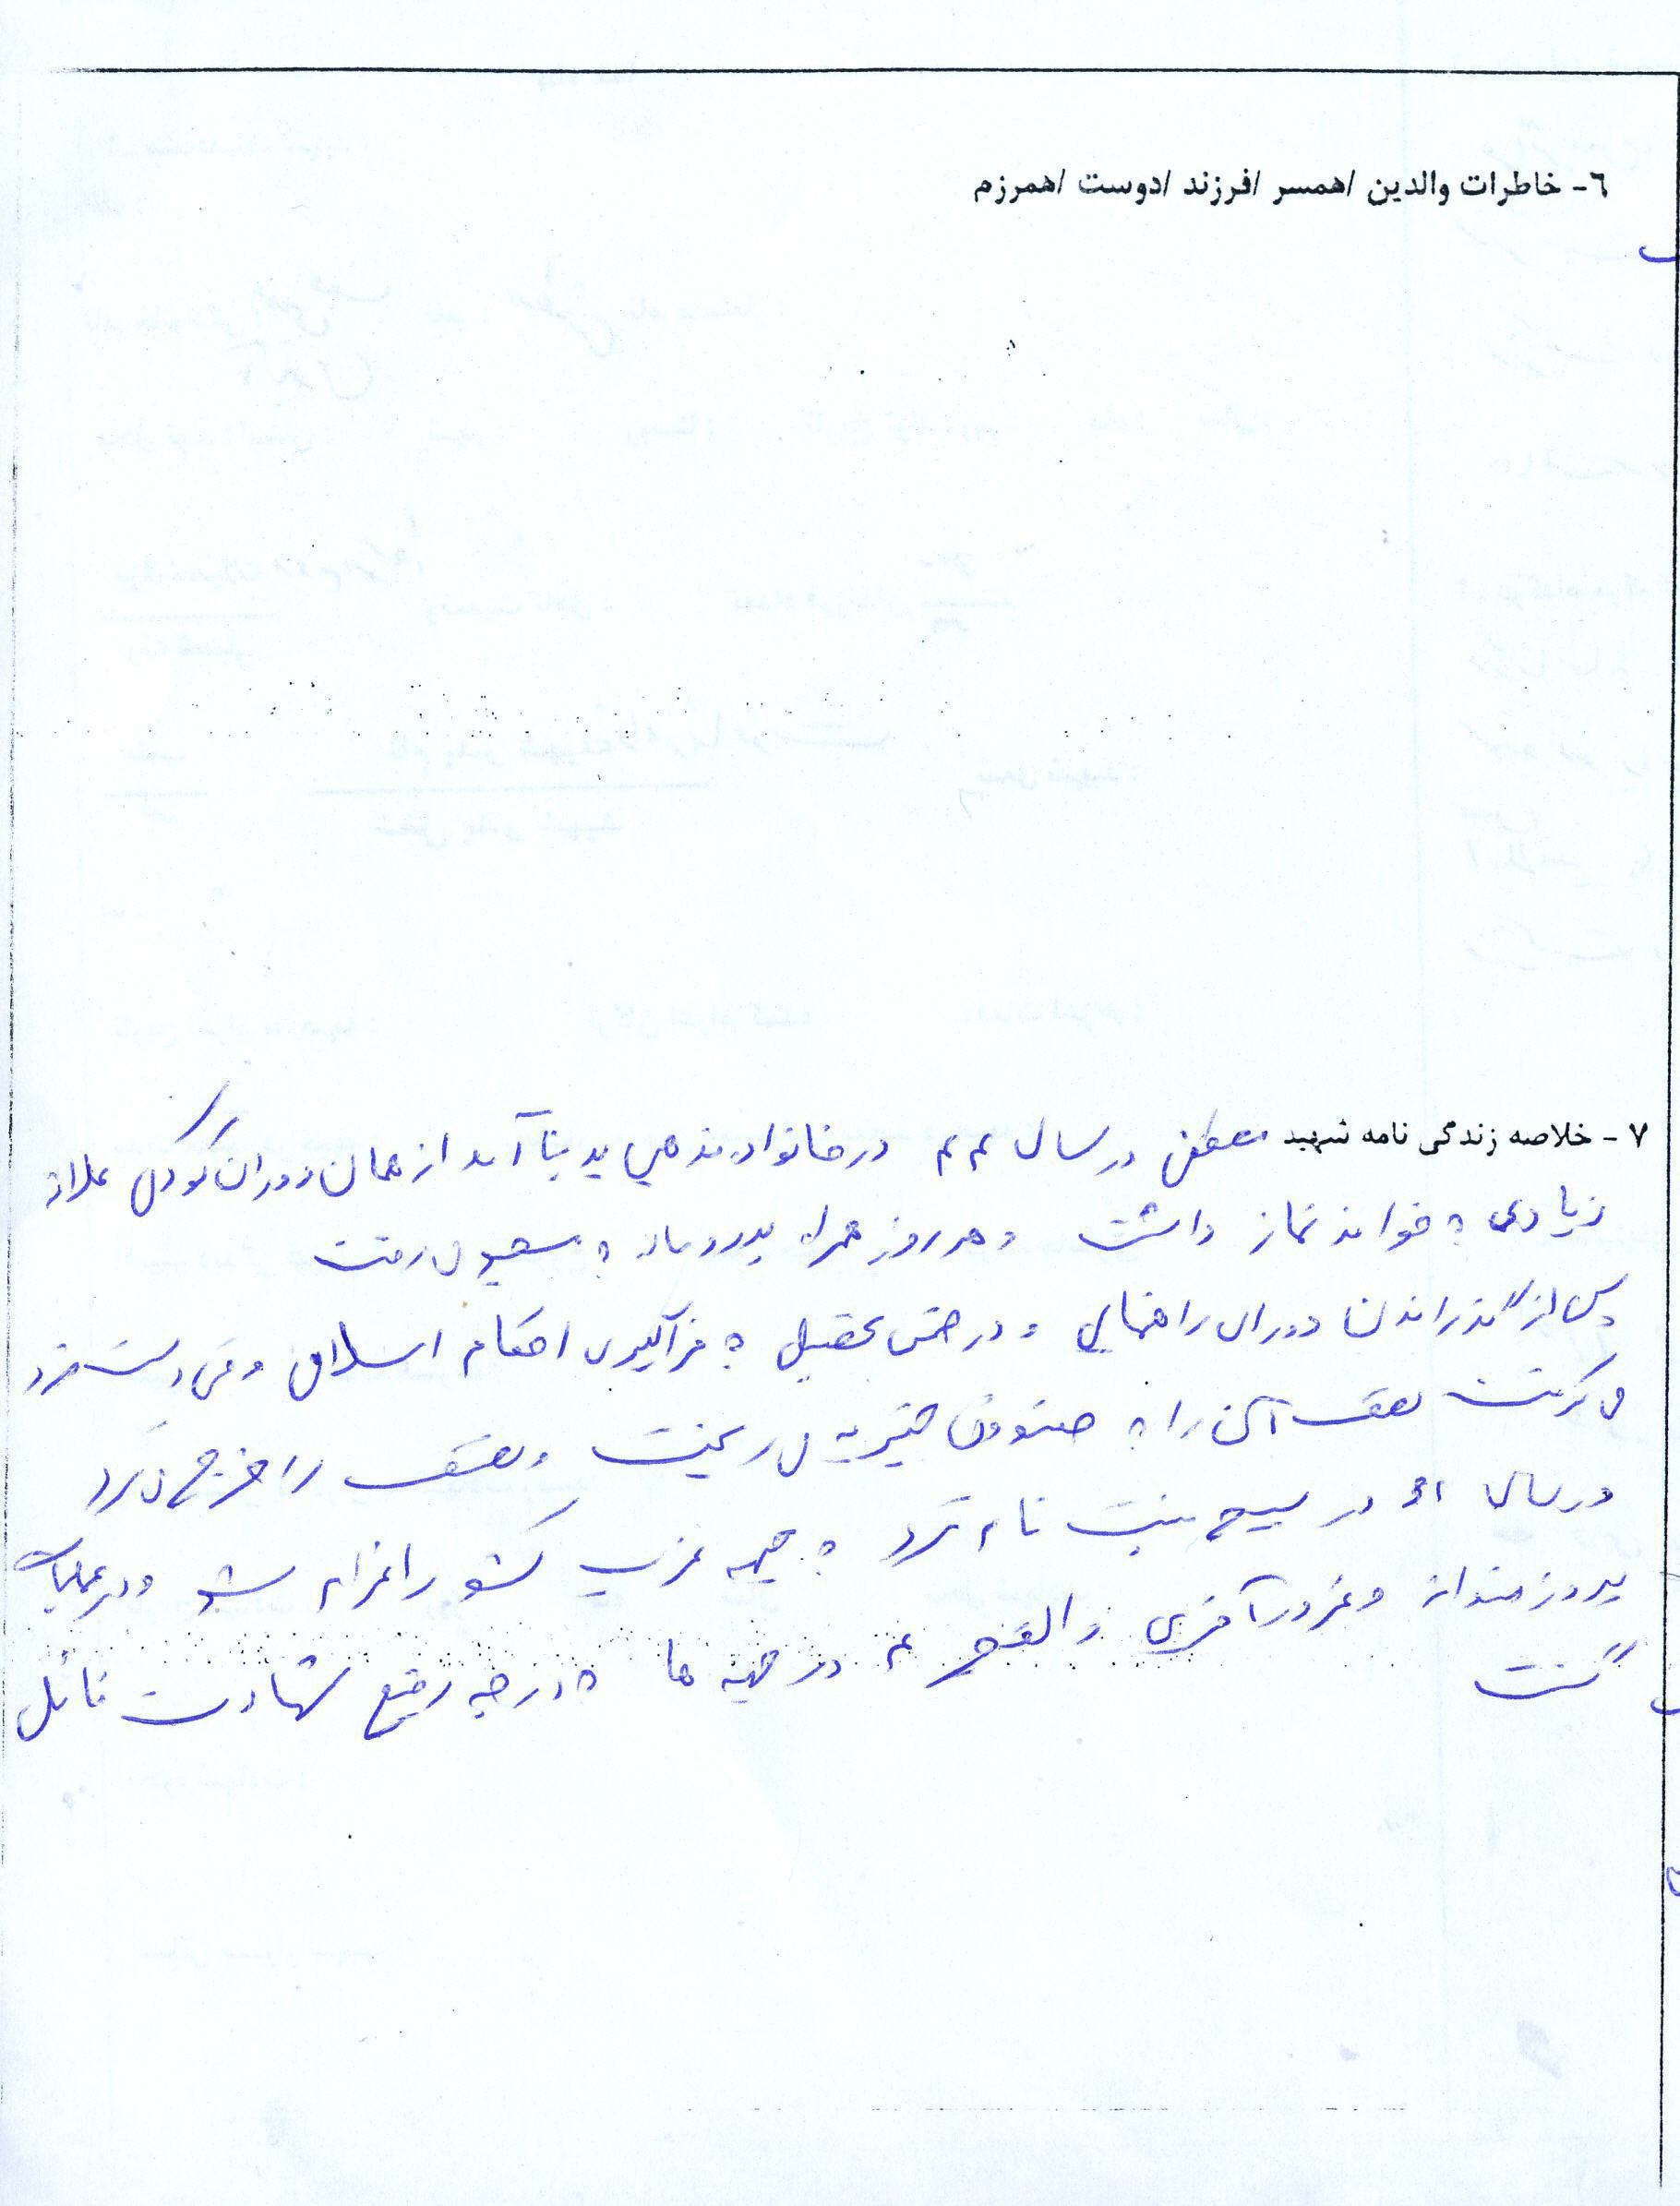 ٦- خاطرات والدین /همسر /فرزند /دوست /همرزم
٧- خلاصه زندگی نامه شهید مصطفی در سال ۴۴ در خانواده مذهبی بدینا آمد از همان دوران کودکی علاقه
زیادی به خواندن نماز داشت و هر روز همراه پدر و مادر به مسجد می رفت
پس از گذراندن دوران راهنمایی و در ضمن تحصیل به فراگیری احکام اسلامی
می گرفت نصف آن را به صندوق خیریه می ریخت و نصف را خرج می کرد
در سال در بسیج ثبت نام کرد و به جبهه غرب کشور اعزام شد و در عملیات
پیروزمندانه و غرورآفرین والفجر ۴ در جبهه ها به درجه رفیع شهادت نائل
گشت